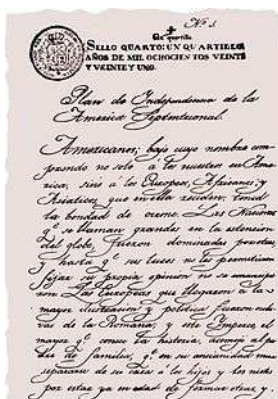 Nº 1.
Un quartillo
SELLO QUARTO: UN QUARTILLO
AÑOS DE MIL OCHOCIENTOS VEINTE
Y VEINTE Y UNO.
Plan de Independencia de la
America Septentrional.
Americanos; bajo cuyo nombre com-
prendo no solo á los nacidos en Ame-
rica, sino á los Europeos, Africanos, y
Asiaticos que en ella residen; tened
la bondad de oirme. Las Naciones
q.e se llaman grandes en la estencion
del globo, fueron dominadas por otras
y hasta q.e sus luces no les permitieron
fijar su propia opinion no se emancipa-
ron. Las Europeas que llegaron á la
mayor ilustracion y politica fueron escla-
vas de la Romana; y este Imperio, el
mayor q.e conoce la historia, asemejó al pa-
dre de familias, q.e en su ancianidad mira
separarse de su casa á los hijos y los nietos
por estar ya en edad de formar otras, y